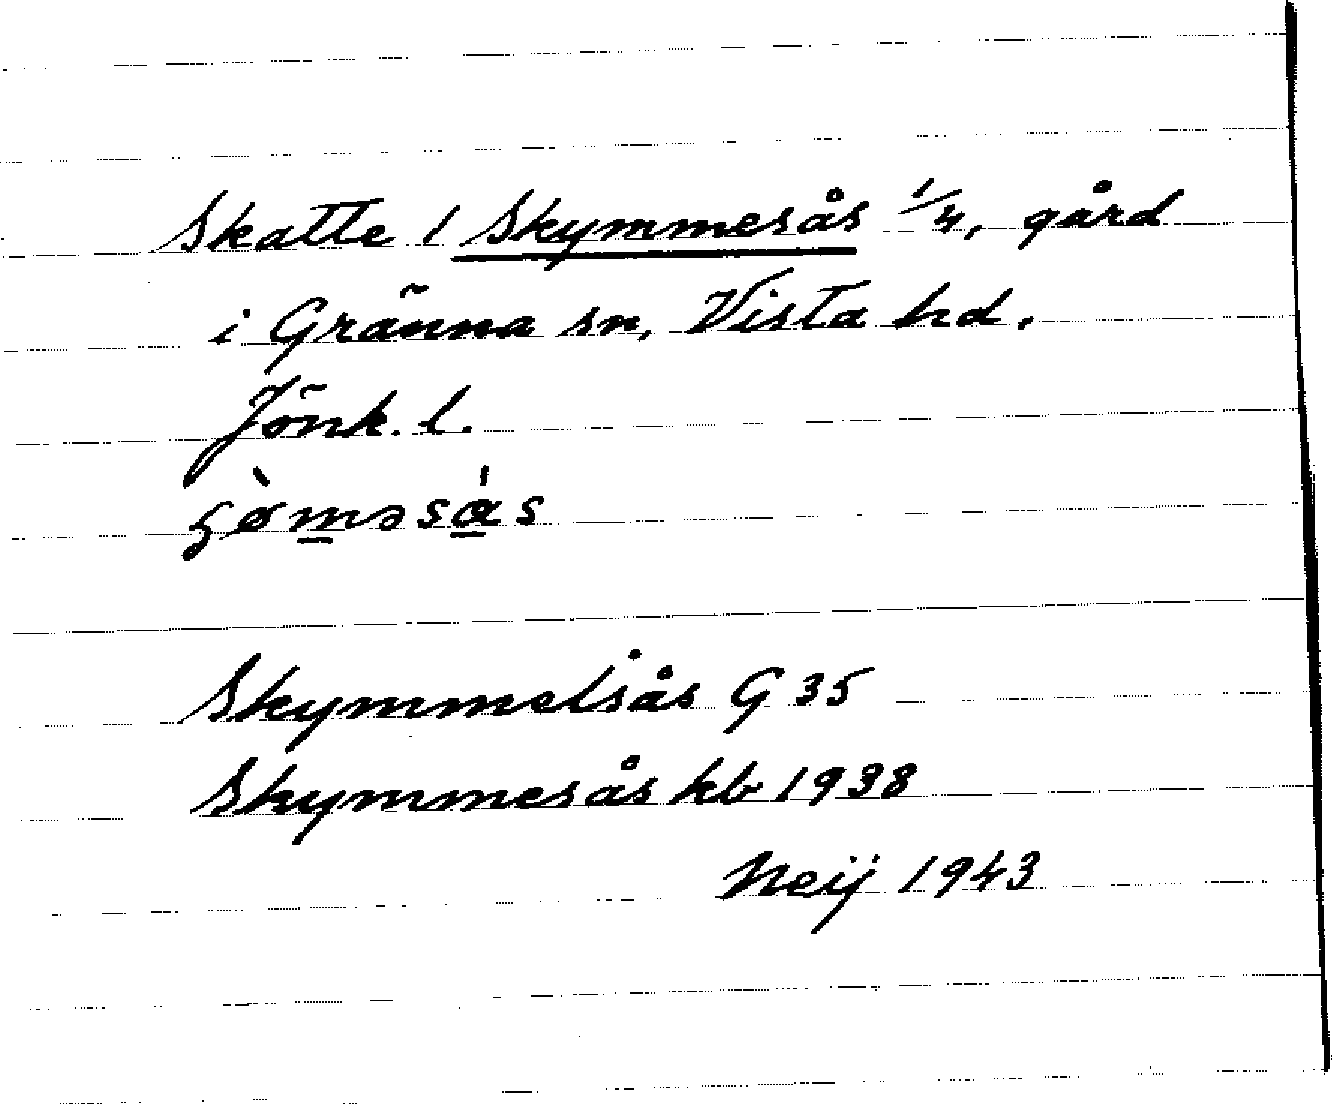 Skatte 1 Skymmesås 1/4, gård
i Gränna sn, Vista hd,
Jönk. l.
Skymmelsås G 35
Skymmesås kb 1938
Neij 1943